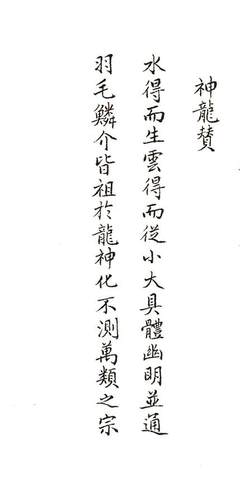 神龍贊
水得而生雲得而從小大具體幽明並通
羽毛鱗介皆祖於龍神化不測萬類之宗